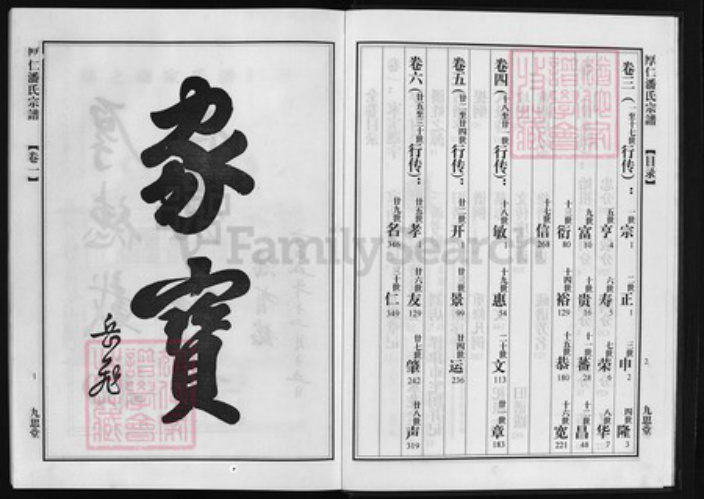 厚仁潘氏宗譜
【目录】
2
九思堂
卷三（一至十七世）行传）：
一世 宗 1
二世 正 1
三世 申 2
四世 隆 3
五世 亨 4
六世 寿 5
七世 荣 6
八世 华 7
九世 富 10
十世 贵 16
十一世 蕃 28
十二世 昌 48
十三世 衍 80
十四世 裕 129
十五世 恭 180
十六世 宽 221
十七世 信 268
卷四（十八至廿一世）行传）：
十八世 敏 1
十九世 惠 54
二十世 文 113
廿一世 章 183
卷五（廿二至廿四世）行传）：
廿二世 开 1
廿三世 景 99
廿四世 运 236
卷六（廿五至三十世）行传）：
廿五世 孝 1
廿六世 友 129
廿七世 肇 242
廿八世 声 319
廿九世 名 346
三十世 仁 349
家寶
岳飛
厚仁潘氏宗譜
【卷一】
1
九思堂
FamilySearch